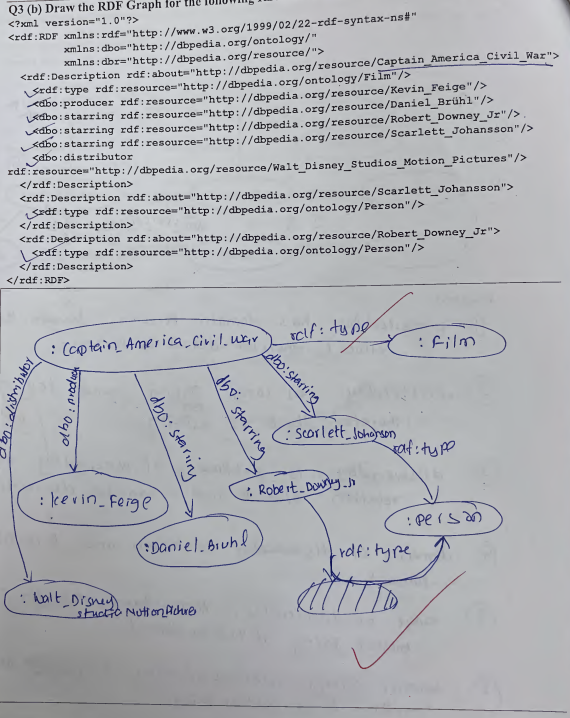 Q3 (b) Draw the RDF Graph for the following
<?xml version="1.0"?>
<rdf:RDF xmlns:rdf="http://www.w3.org/1999/02/22-rdf-syntax-ns#"
xmlns:dbo="http://dbpedia.org/ontology/"
xmlns:dbr="http://dbpedia.org/resource/">
<rdf:Description rdf:about="http://dbpedia.org/resource/Captain_America_Civil_War">
<rdf:type rdf:resource="http://dbpedia.org/ontology/Film"/>
<dbo:producer rdf:resource="http://dbpedia.org/resource/Kevin_Feige"/>
<dbo:starring rdf:resource="http://dbpedia.org/resource/Daniel_Brühl"/>
<dbo:starring rdf:resource="http://dbpedia.org/resource/Robert_Downey_Jr"/>
<dbo:starring rdf:resource="http://dbpedia.org/resource/Scarlett_Johansson"/>
<dbo:distributor
rdf:resource="http://dbpedia.org/resource/Walt_Disney_Studios_Motion_Pictures"/>
</rdf:Description>
<rdf:Description rdf:about="http://dbpedia.org/resource/Scarlett_Johansson">
<rdf:type rdf:resource="http://dbpedia.org/ontology/Person"/>
</rdf:Description>
<rdf:Description rdf:about="http://dbpedia.org/resource/Robert_Downey_Jr">
<rdf:type rdf:resource="http://dbpedia.org/ontology/Person"/>
</rdf:Description>
</rdf:RDF>
: Captain_America_Civil_War
rdf: type
: Film
dbo:distributor
dbo:producer
dbo:starring
dbo: starring
dbo:starring
: Scarlett_Johanson
rdf:type
: Kevin_Feige
: Robert_Downey_Jr
: Person
:Daniel_Bruhl
rdf: type
: Walt_Disney